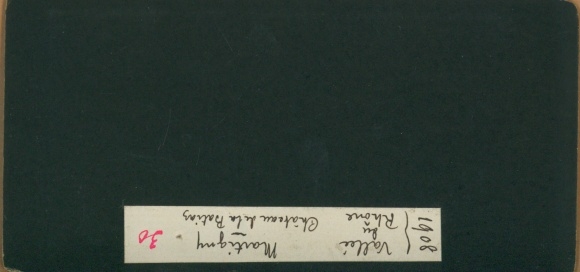 1908 { Vallée du Rhône
Martigny
Château de la Batiaz
30